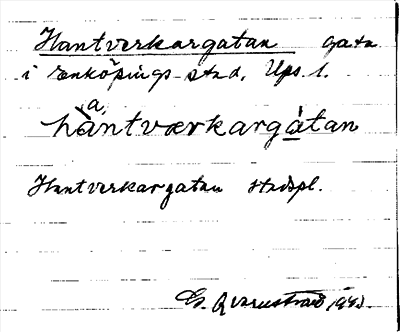 Hantverkargatan gata
i Enköpings stad, Ups. l.
a
hàntværkargátan
Hantverkargatan stadspl.
G. Qvarnström 1943.